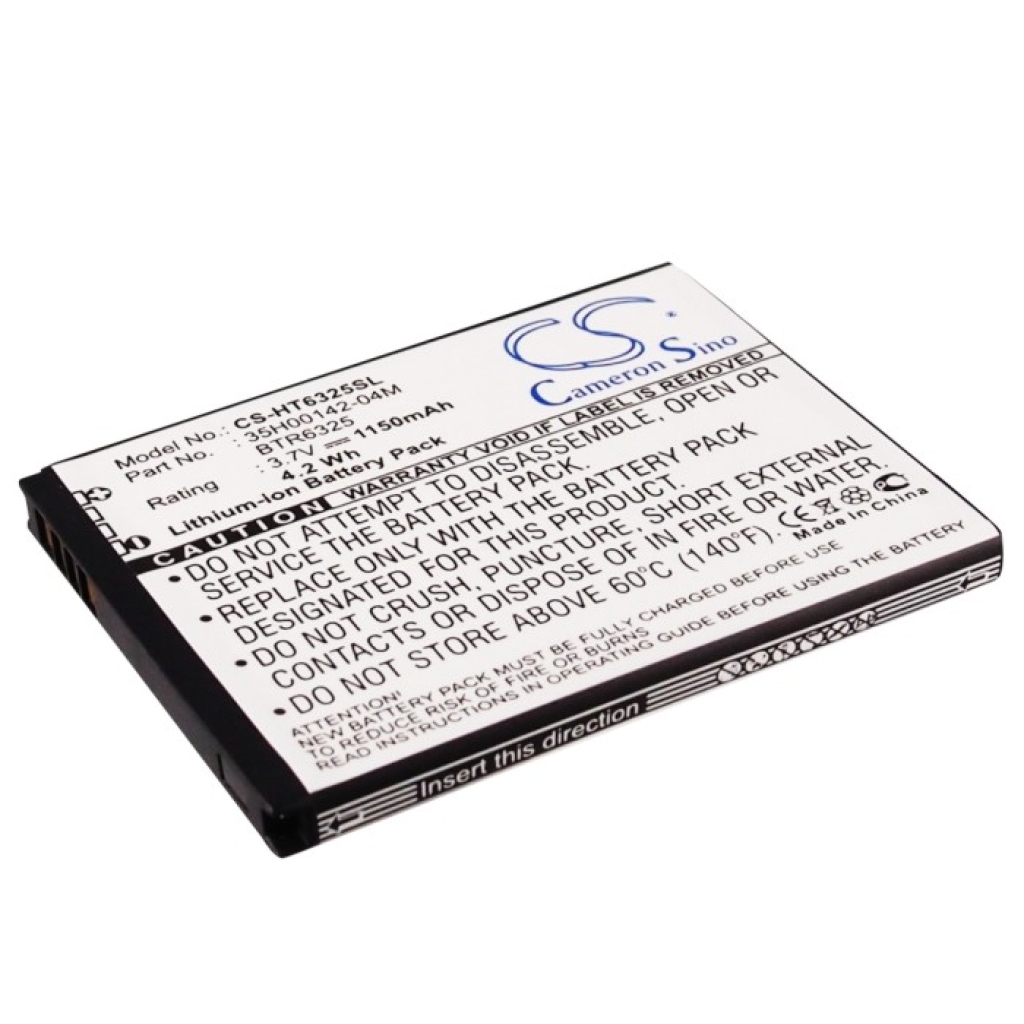 CS
Cameron Sino
Model No.: CS-HT6325SL
Part No. : 35H00142-04M
BTR6325
Rating : 3.7V 1150mAh
4.2 Wh
Lithium-Ion Battery Pack
CAUTION
•DO NOT ATTEMPT TO DISASSEMBLE, OPEN OR
SERVICE THE BATTERY PACK.
•REPLACE ONLY WITH SAME BATTERY PACK
DESIGNATED FOR THIS PRODUCT.
•DO NOT CRUSH, PUNCTURE, SHORT EXTERNAL
CONTACTS OR DISPOSE OF IN FIRE
•DO NOT STORE ABOVE 60°C (140°F).
CE Made in China
ATTENTION/
NEW BATTERY PACK MUST BE FULLY CHARGED BEFORE USE
TO REDUCE RISK OF FIRE OR BURNS
READ INSTRUCTIONS OPERATING GUIDE BEFORE USING THE BATTERY
Insert this direction